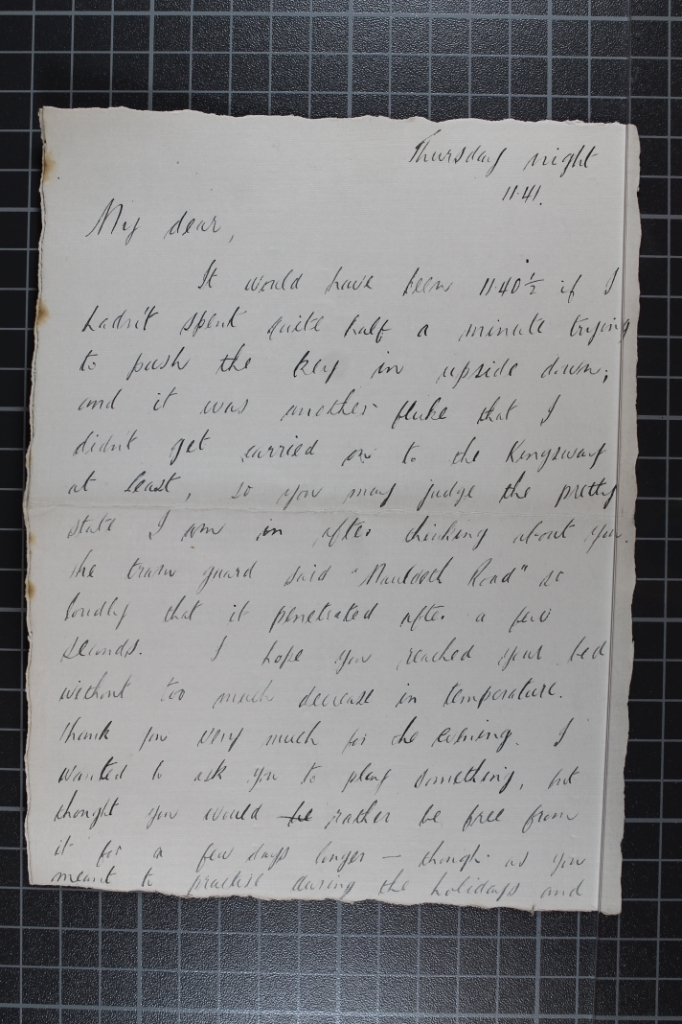 Thursday night
11.41.
My dear,
It would have been 11.40½ if I
hadn't spent quite half a minute trying
to push the key in upside down;
and it was another fluke that I
didn't get carried on to the Kingsway
at least, so you may judge the pretty
state I am in after thinking about you.
The tram guard said "Mauldeth Road" so
loudly that it penetrated after a few
seconds. I hope you reached your bed
without too much decrease in temperature.
Thank you very much for the evening. I
wanted to ask you to play something, but
thought you would be rather be free from
it for a few days longer — though as you
meant to practise during the holidays and